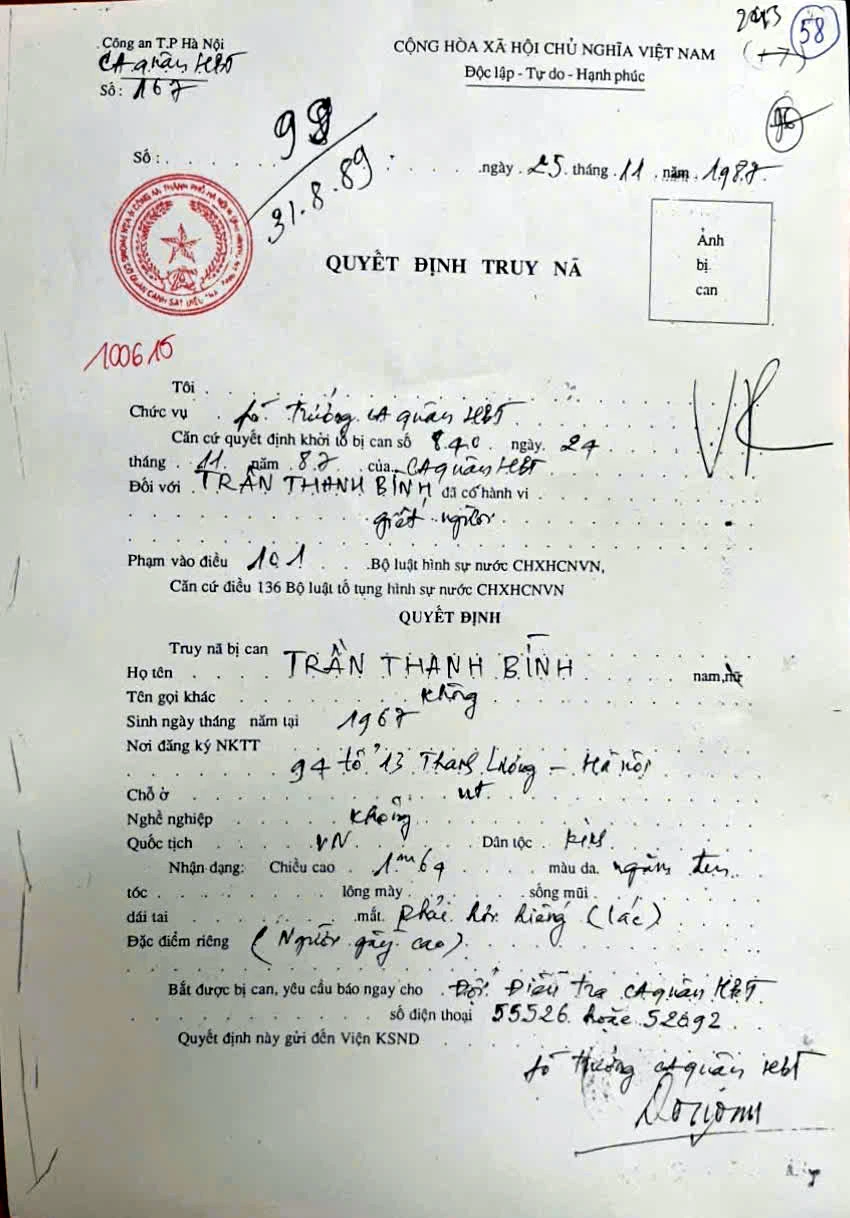 2013
58
Công an T.P Hà Nội
CA quận HBT
Số: 167
CỘNG HÒA XÃ HỘI CHỦ NGHĨA VIỆT NAM
Độc lập - Tự do - Hạnh phúc
Số: . . . . . . 98
31.8.89
ngày 25 tháng 11 năm 1987
QUYẾT ĐỊNH TRUY NÃ
Ảnh
bị
can
100615
Tôi
Chức vụ . Phó trưởng CA quận HBT
Căn cứ quyết định khởi tố bị can số 840 ngày 24
tháng 11 năm 87 của CA quận HBT
Đối với TRẦN THANH BÍNH đã có hành vi
giết người
Phạm vào điều 101 Bộ luật hình sự nước CHXHCNVN,
Căn cứ điều 136 Bộ luật tố tụng hình sự nước CHXHCNVN
QUYẾT ĐỊNH
Truy nã bị can
Họ tên TRẦN THANH BÍNH nam, nữ
Tên gọi khác không
Sinh ngày tháng năm tại 1967
Nơi đăng ký NKTT
94 tổ 13 Thanh Lương - Hà Nội
Chỗ ở nt
Nghề nghiệp không
Quốc tịch VN Dân tộc kinh
Nhận dạng: Chiều cao 1m64 màu da ngăm đen
tóc lông mày sống mũi
dái tai mắt phải hơi hiếng (lác)
Đặc điểm riêng (Người gầy cao)
Bắt được bị can, yêu cầu báo ngay cho Đội Điều tra CA quận HBT
số điện thoại 55526 hoặc 52692
Quyết định này gửi đến Viện KSND
Phó trưởng CA quận HBT